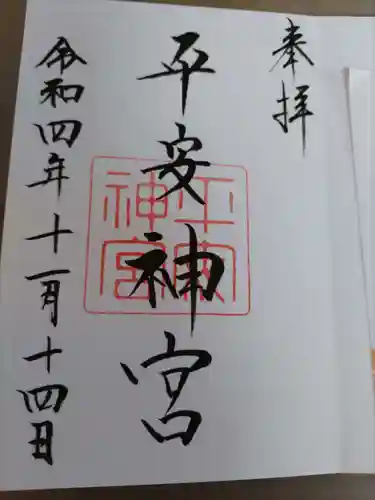 奉拝
平安神宮
平安神宮
令和四年十一月十四日